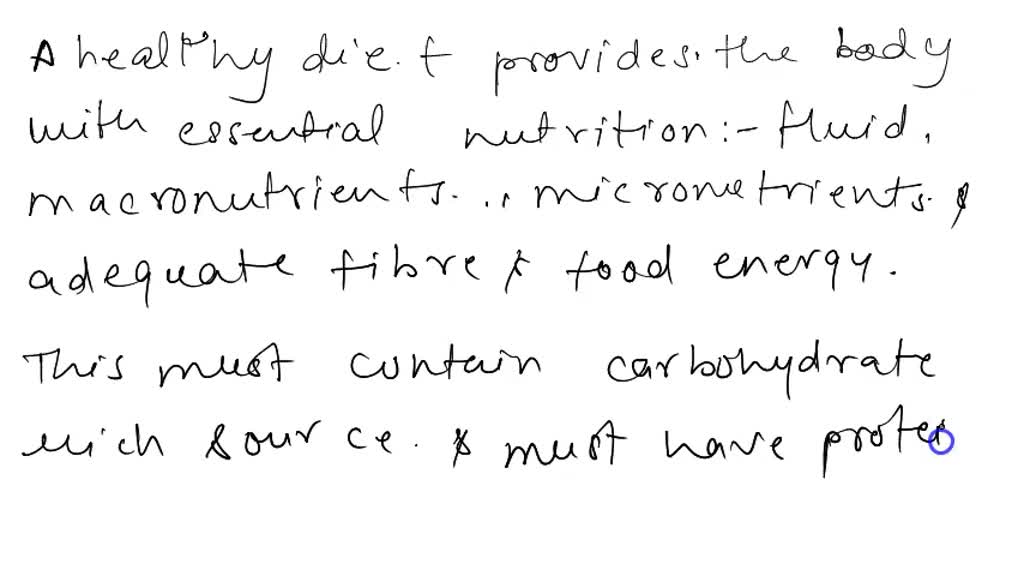 A healthy diet provides the body
with essential nutrition:- fluid,
macronutrients.., micronutrients. &
adequate fibre & food energy.
This must contain carbohydrate
rich source. & must have prote